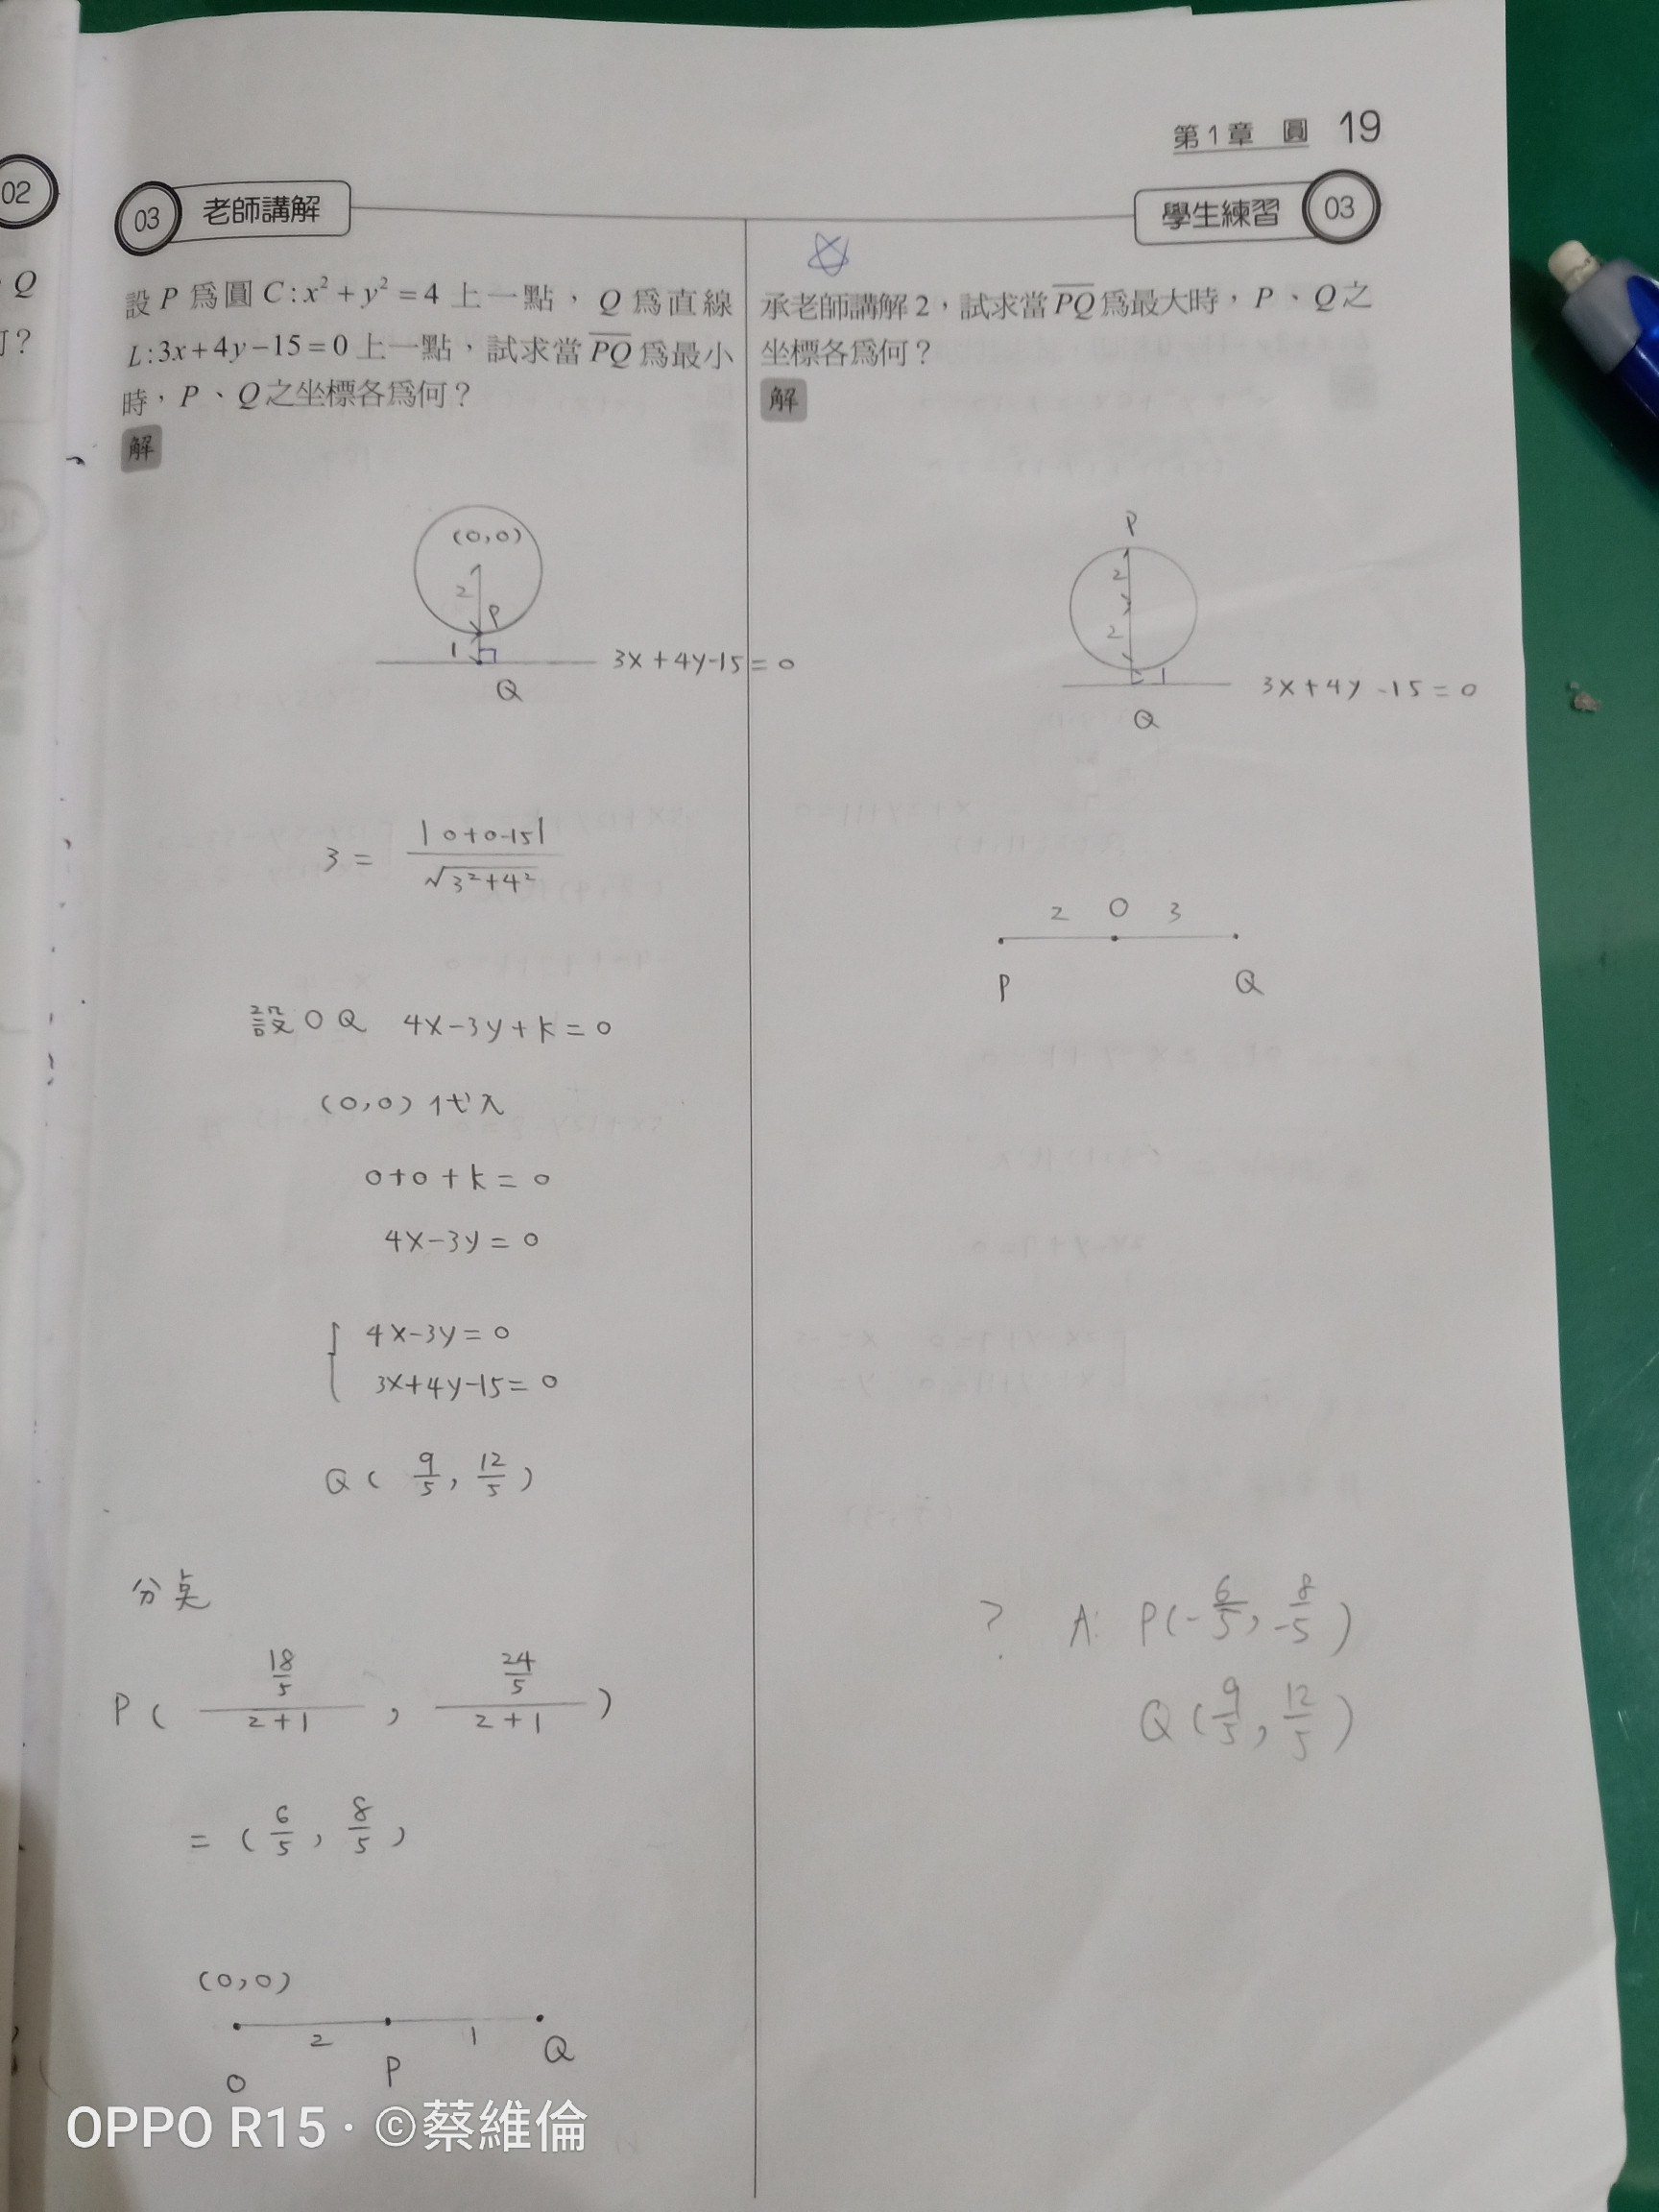 第1章 圓 19
02
Q
何?
03 老師講解
設P為圓C:x²+y²=4上一點,Q為直線
L:3x+4y−15=0上一點,試求當PQ為最小
時,P、Q之坐標各為何?
解
(0,0)
2
P
1
3x+4y-15=0
Q
3 = |0+0-15| / √3²+4²
設OQ 4x-3y+k=0
(0,0)代入
0+0+k=0
4x-3y=0
4x-3y=0
3x+4y-15=0
Q(9/5, 12/5)
分點
P( 18/5 / 2+1 , 24/5 / 2+1 )
=(6/5, 8/5)
(0,0)
2 1
O P Q
學生練習 03
承老師講解2,試求當PQ為最大時,P、Q之
坐標各為何?
解
P
2
2
1
3x+4y-15=0
Q
2 O 3
P Q
? A: P(-6/5, -8/5)
Q(9/5, 12/5)
OPPO R15 · ©蔡維倫